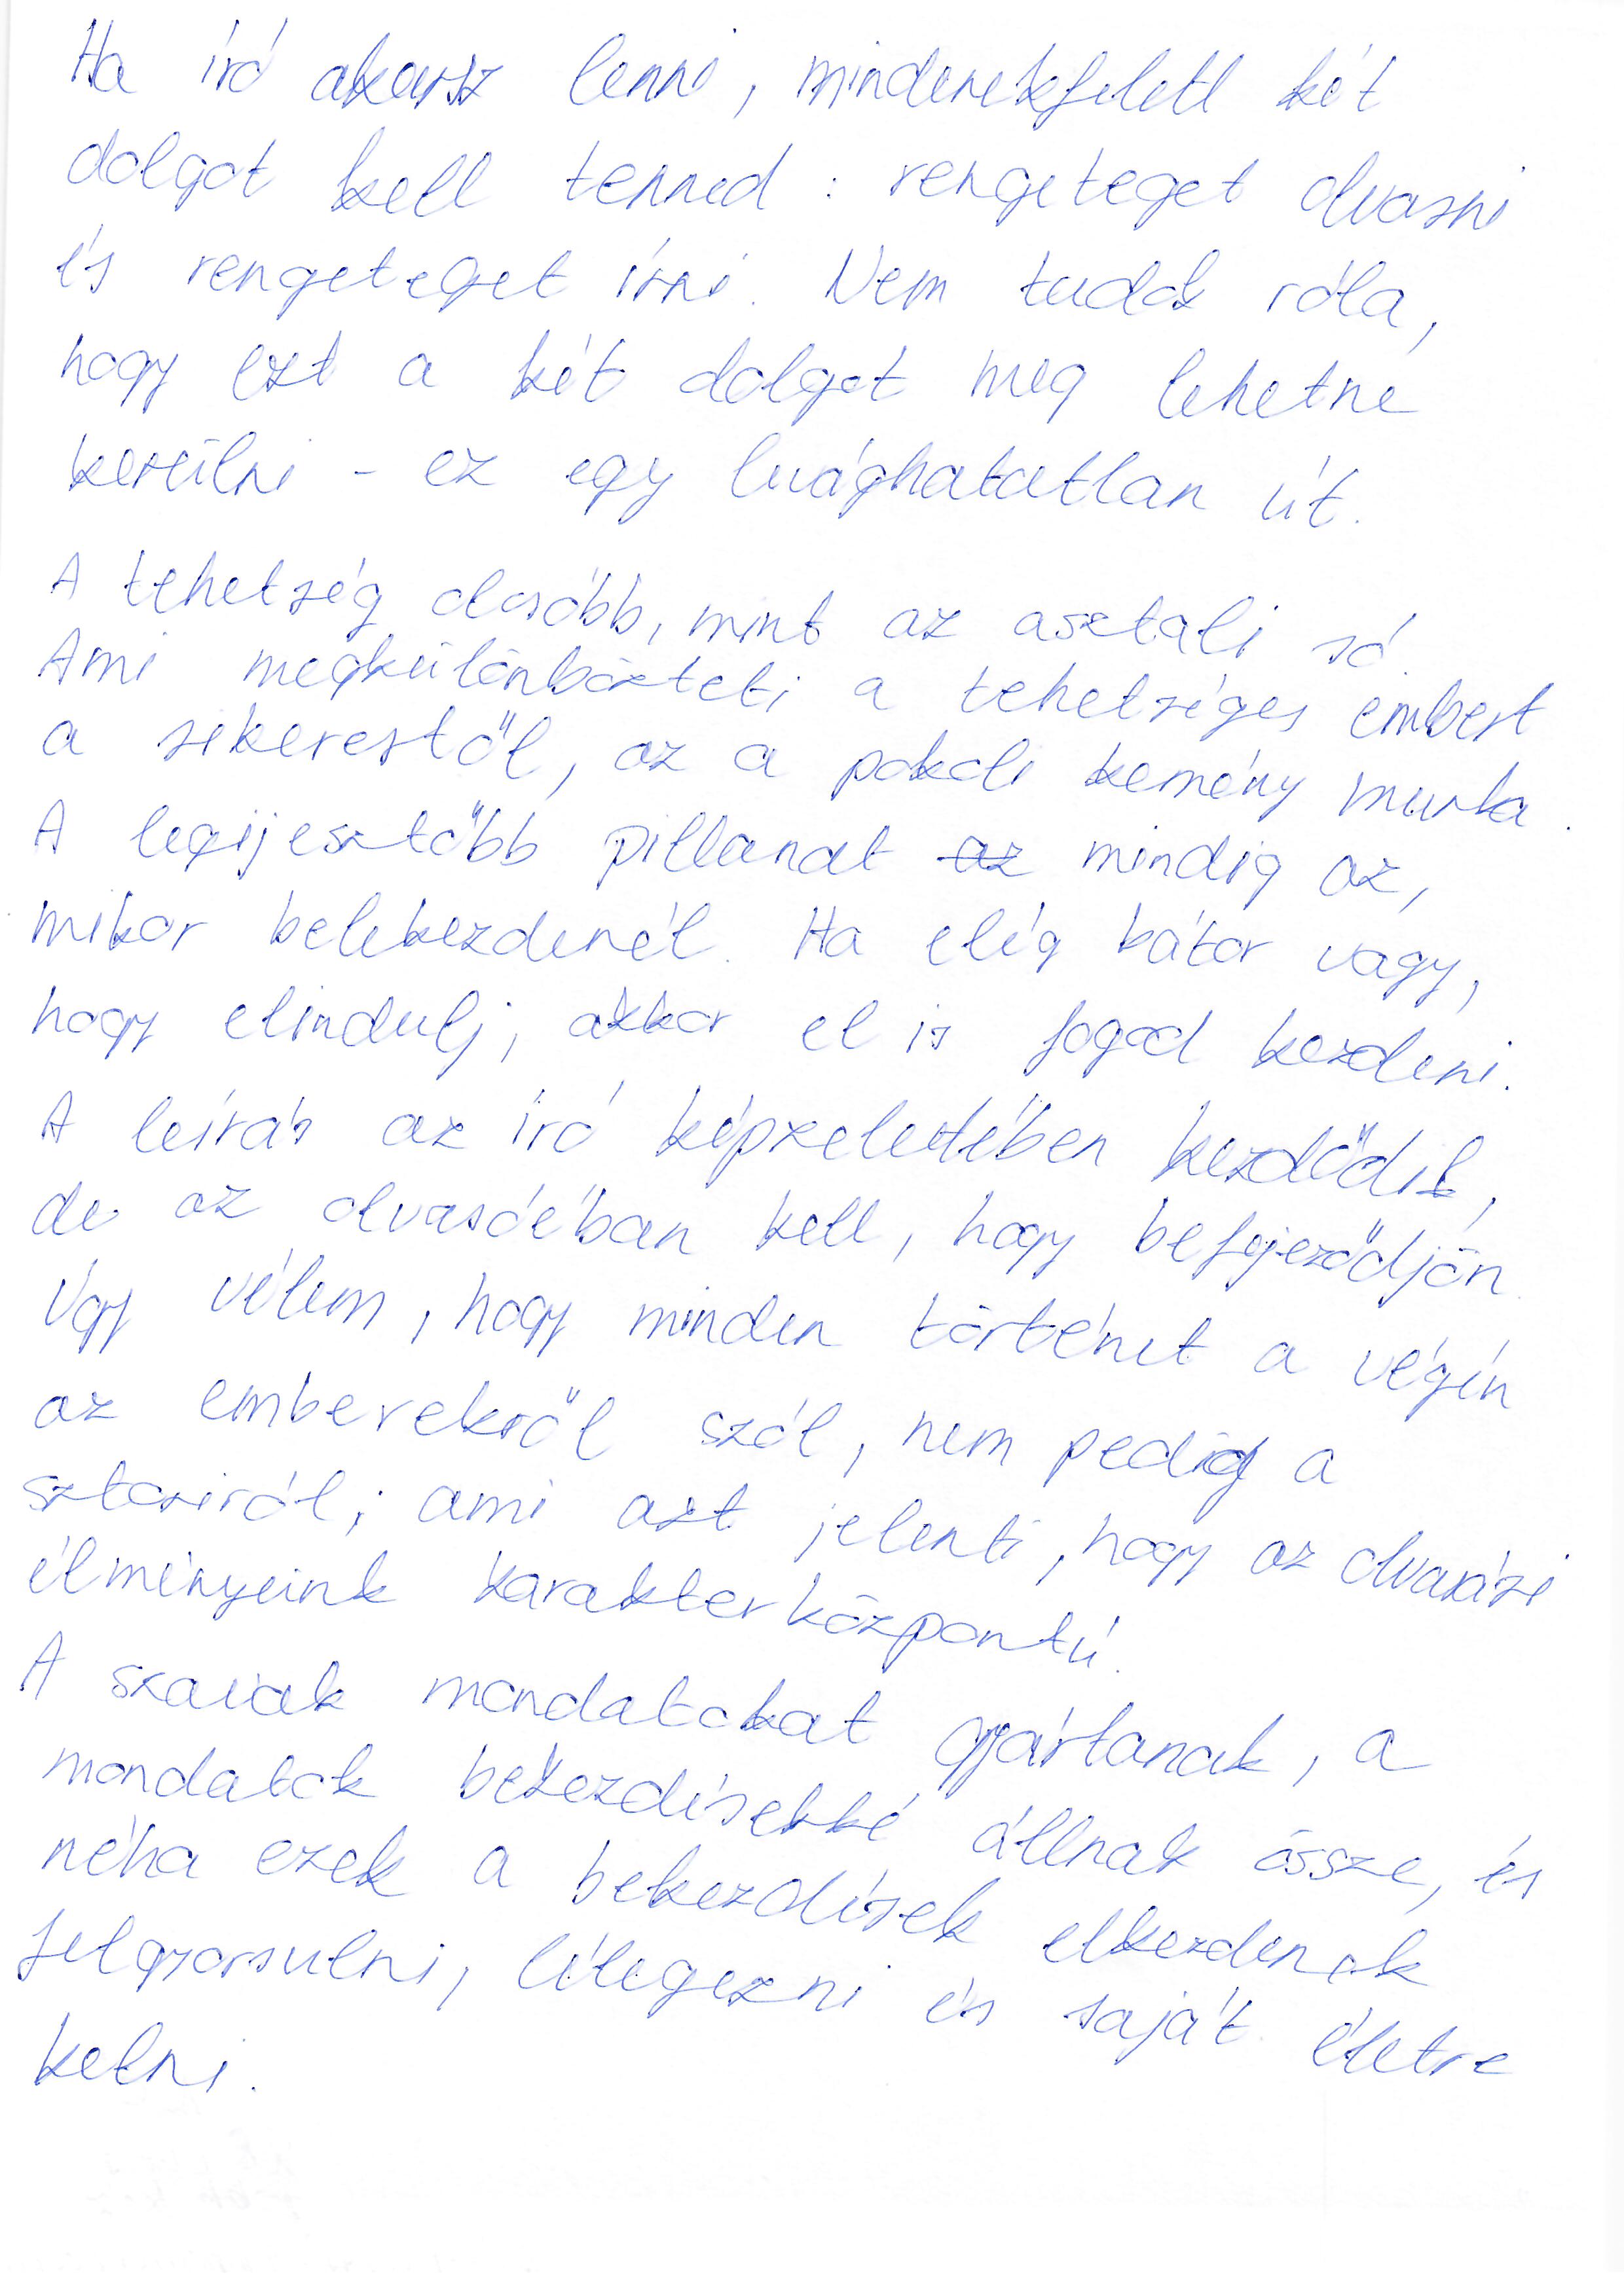 Ha író akarsz lenni, mindenekfelett két
dolgot kell tenned: rengeteget olvasni
és rengeteget írni. Nem tudok róla,
hogy ezt a két dolgot meg lehetne
kerülni - ez egy levághatatlan út.
A tehetség olcsóbb, mint az asztali só.
Ami megkülönbözteti a tehetséges embert
a sikerestől, az a pokoli kemény munka.
A legijesztőbb pillanat az mindig az,
mikor belekezdenél. Ha elég bátor vagy,
hogy elindulj, akkor el is fogod kezdeni.
A leírás az író képzeletében kezdődik,
de az olvasóéban kell, hogy befejeződjön.
Úgy vélem, hogy minden történet a végén
az emberekről szól, nem pedig a
sztoriról; ami azt jelenti, hogy az olvasási
élményeink karakterközpontú.
A szavak mondatokat gyártanak, a
mondatok bekezdésekké állnak össze, és
néha ezek a bekezdések elkezdenek
felgyorsulni, lélegezni és saját életre
kelni.